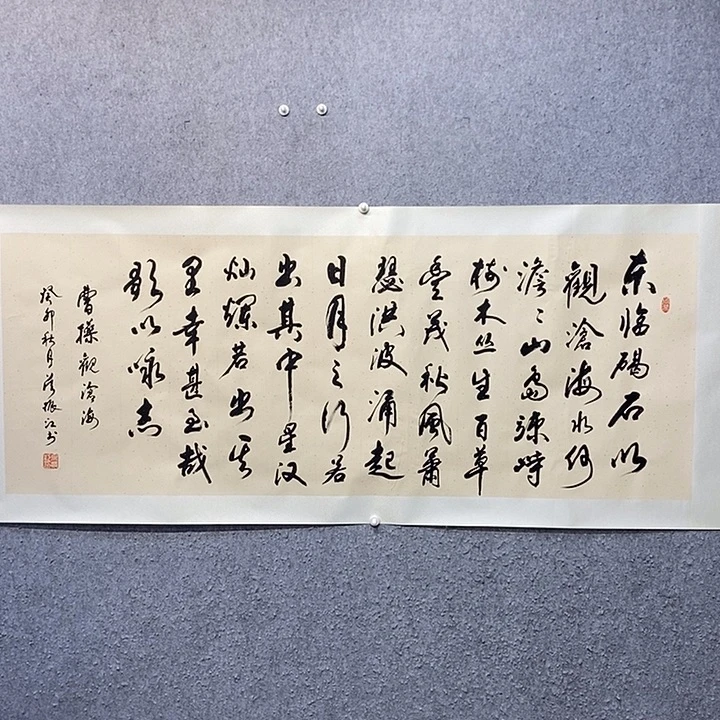 东临碣石以
觀滄海水何
澹〻山島竦峙
树木丛生百草
豐茂秋風蕭
瑟洪波涌起
日月之行若
出其中星汉
灿爛若出其
里幸甚至哉
歌以咏志
曹操觀滄海
癸卯秋月振江书